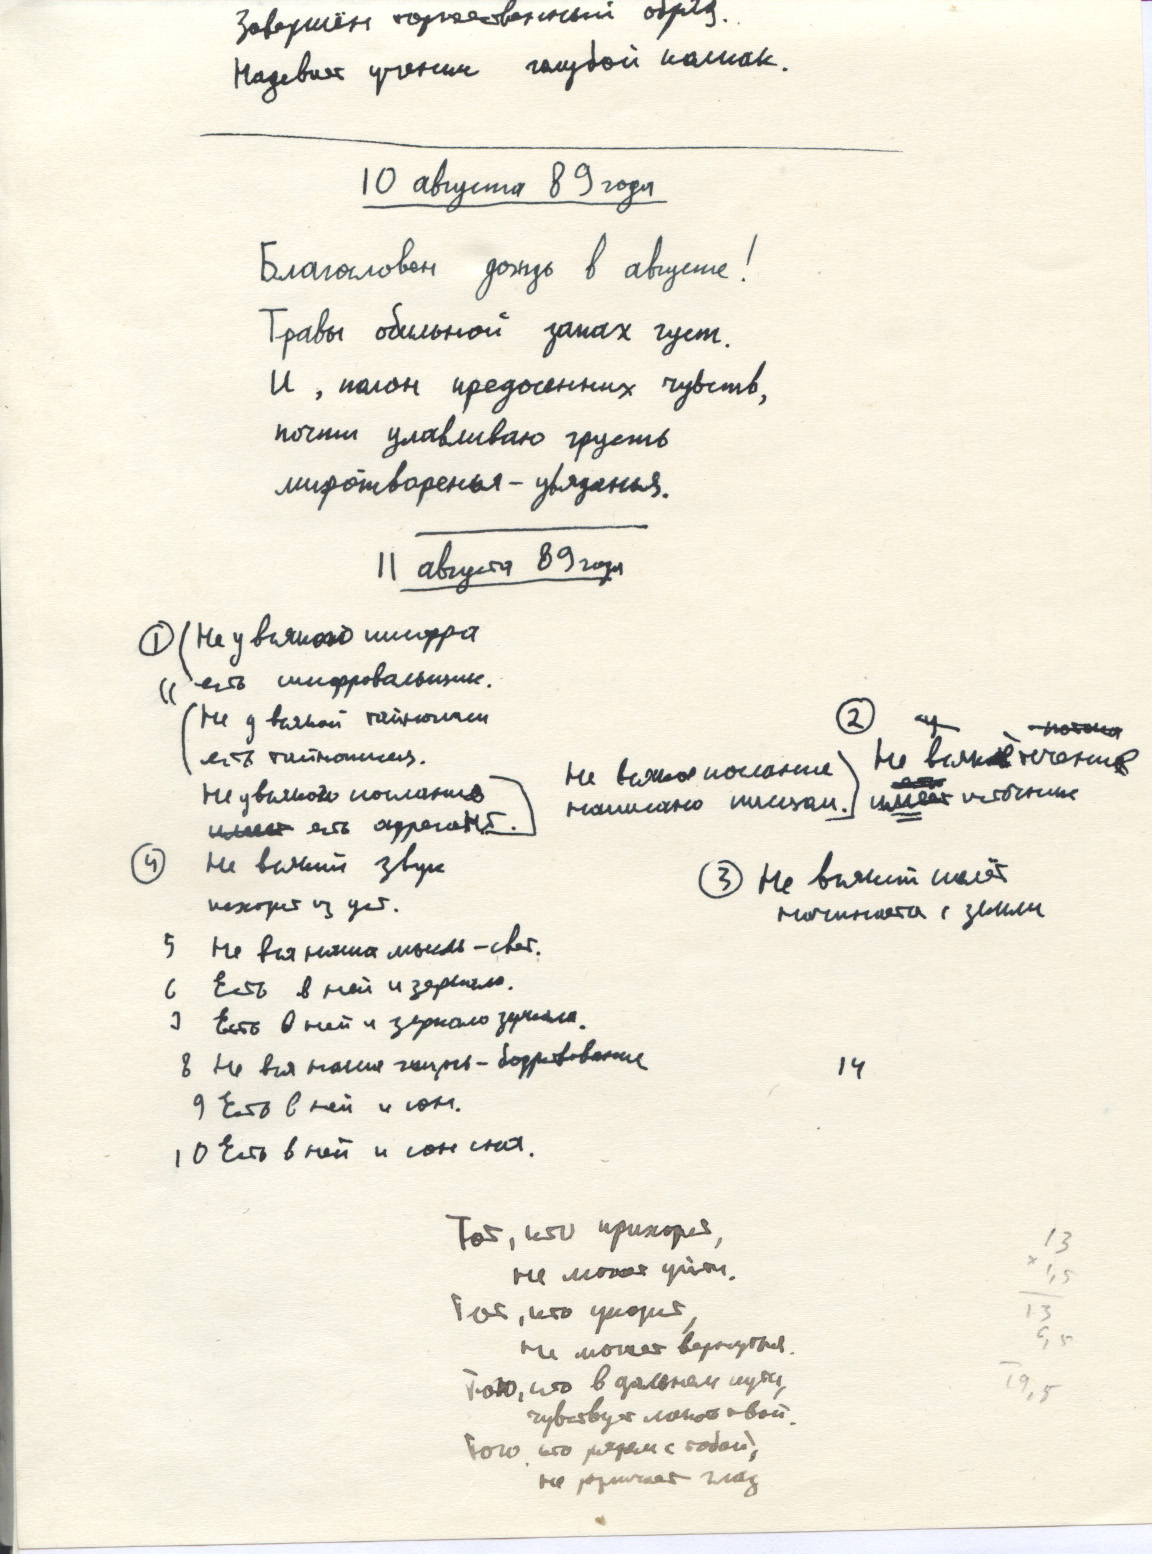 Завершён торжественный обряд.
Надевает ученик голубой колпак.
10 августа 89 года
Благословен дождь в августе!
Травы обильной запах густ.
И, полон предосенних чувств,
почти улавливаю грусть
миротворенья-увяданья.
11 августа 89 года
① Не у всякого шифра
есть шифровальщик.
Не у всякой тайнописи
есть тайнописец.
Не у всякого послания
есть адресат.
Не всякое послание
написано писцом.
② у потока
Не всякое течение
имеет источник
③ Не всякий полёт
начинается с земли
④ Не всякий звук
исходит из уст.
5 Не вся наша мысль - свет.
6 Есть в ней и зеркало.
7 Есть в ней и зеркало зеркала.
8 Не вся наша жизнь - бодрствование
9 Есть в ней и сон.
10 Есть в ней и сон сна.
14
Тот, кто приходит,
не может уйти.
Тот, кто уходит,
не может вернуться.
Того, кто в дальнем пути,
чувствует локоть твой.
Того, кто рядом с тобой,
не различает глаз
13
× 1,5
13
6,5
19,5